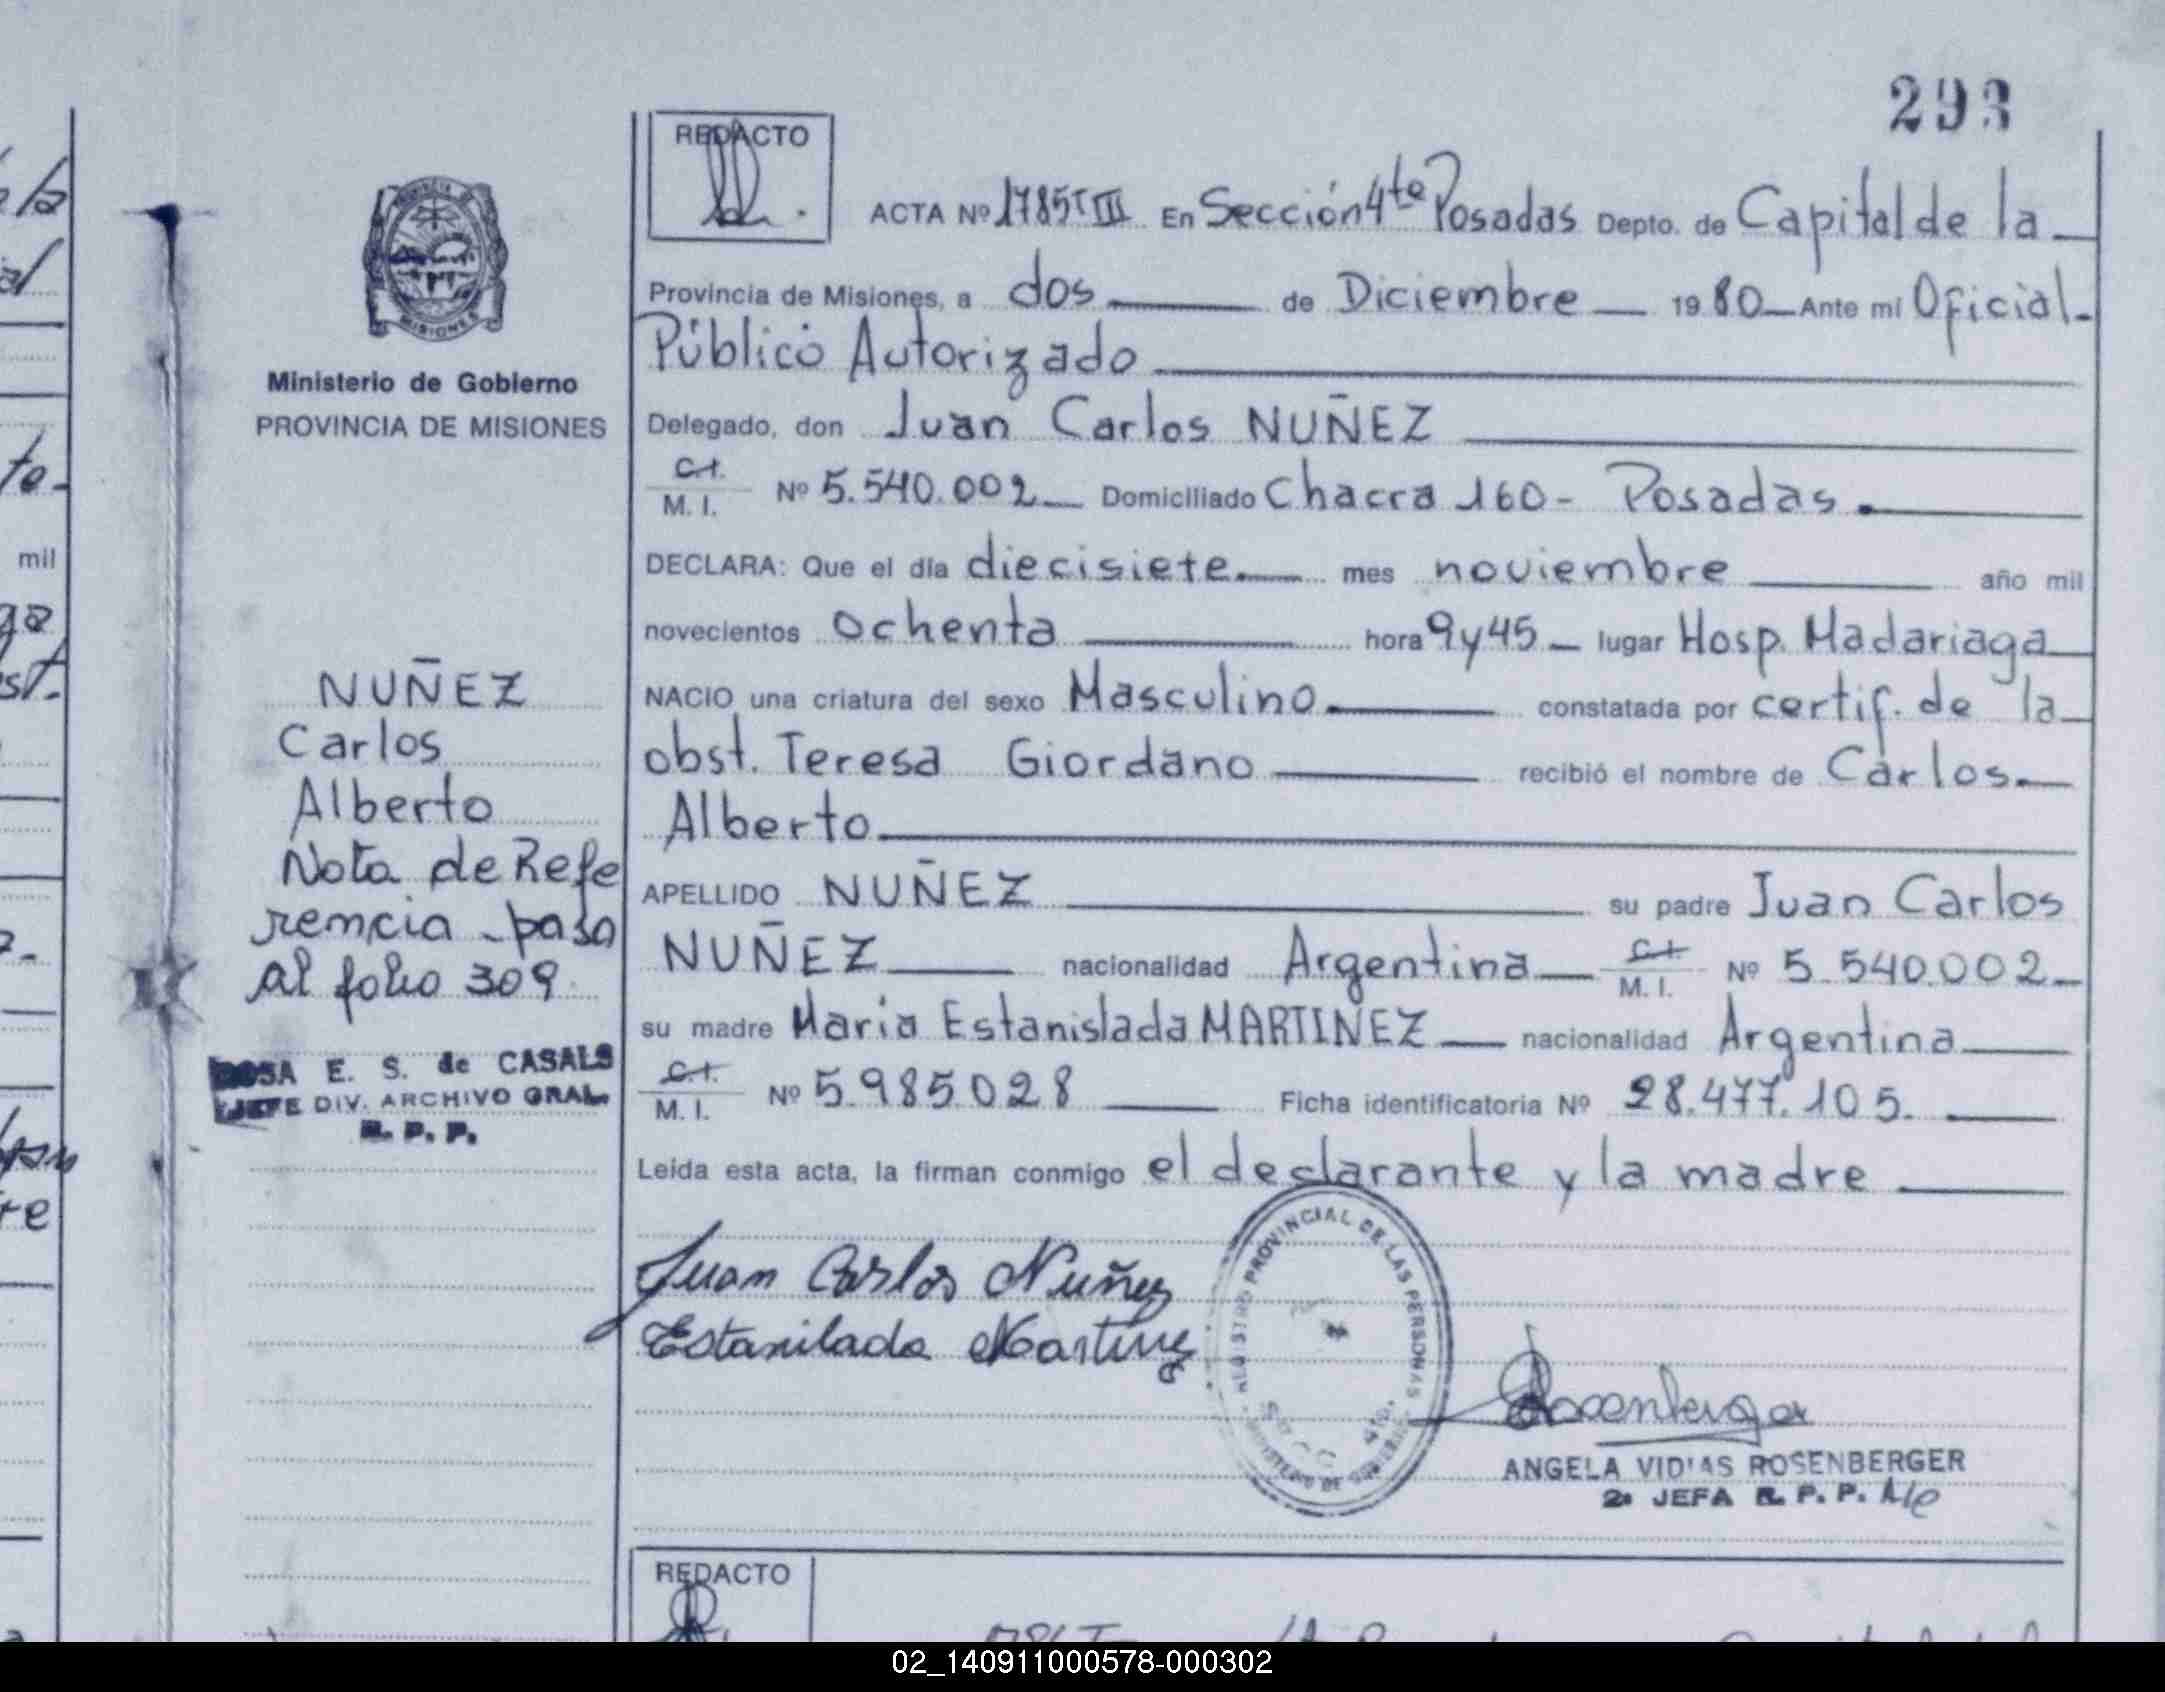 293
REDACTO
ACTA Nº 1785 T III En Sección 4ta Posadas Depto. de Capital de la
Provincia de Misiones, a dos de Diciembre 1980 Ante mi Oficial
Público Autorizado
Delegado, don Juan Carlos NUÑEZ
C.I.
M. I. Nº 5.540.002 Domiciliado Chacra 160 - Posadas.
DECLARA: Que el día diecisiete mes noviembre año mil
novecientos ochenta hora 9 y 45 lugar Hosp. Madariaga
NACIO una criatura del sexo Masculino constatada por certif. de la
obst. Teresa Giordano recibió el nombre de Carlos
Alberto
APELLIDO NUÑEZ su padre Juan Carlos
NUÑEZ nacionalidad Argentina C.I. M. I. Nº 5.540.002
su madre Maria Estanislada MARTINEZ nacionalidad Argentina
C.I.
M. I. Nº 5.985.028 Ficha identificatoria Nº 28.477.105.
Leida esta acta, la firman conmigo el declarante y la madre
Juan Carlos Nuñez
Estanilada Martinez
REGISTRO PROVINCIAL DE LAS PERSONAS
MINISTERIO DE GOBIERNO
Rosenberger
ANGELA VIDIAS ROSENBERGER
2ª JEFA R. P. P.
REDACTO
PROVINCIA DE
MISIONES
Ministerio de Gobierno
PROVINCIA DE MISIONES
NUÑEZ
Carlos
Alberto
Nota de Refe
rencia - pasa
al folio 309
ROSA E. S. de CASALS
JEFE DIV. ARCHIVO GRAL.
R. P. P.
mil
02_140911000578-000302